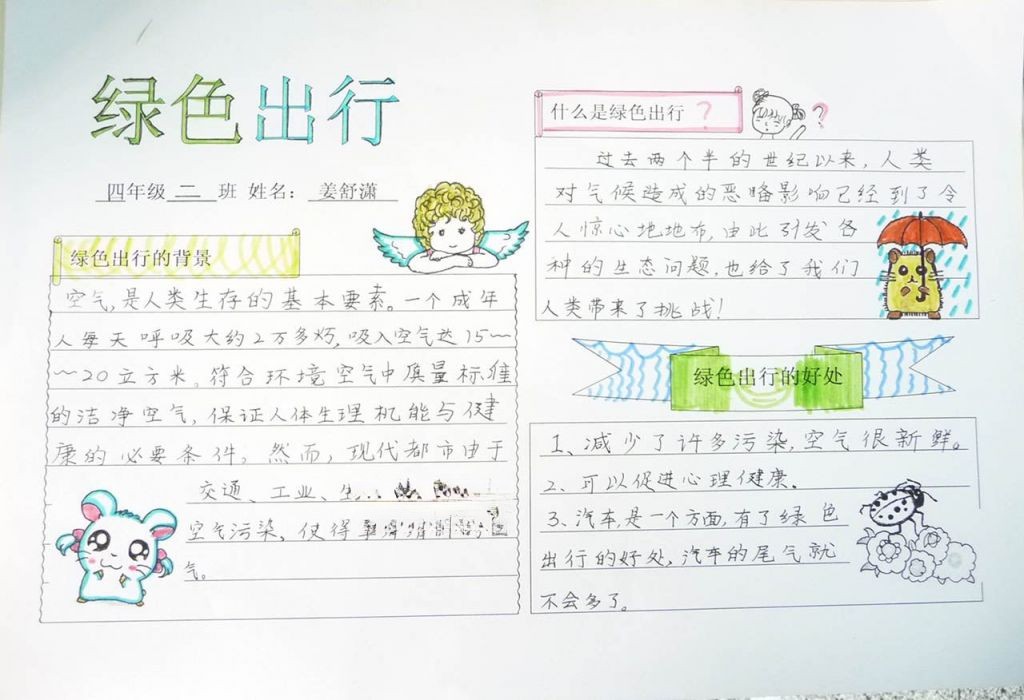 绿色出行
四年级 二 班 姓名： 姜舒潇
绿色出行的背景
空气，是人类生存的基本要素。一个成年
人每天呼吸大约2万多炳，吸入空气达15~
~20立方米。符合环境空气中质量标准
的洁净空气，保证人体生理机能与健
康的必要条件，然而，现代都市由于
交通、工业、生
空气污染，使得
气。
什么是绿色出行？
？
过去两个半的世纪以来，人类
对气候造成的恶略影响已经到了令
人惊心地地布，由此引发各
种的生态问题，也给了我们
人类带来了挑战！
绿色出行的好处
1、减少了许多污染，空气很新鲜。
2、可以促进心理健康.
3、汽车，是一个方面，有了绿色
出行的好处，汽车的尾气就
不会多了。